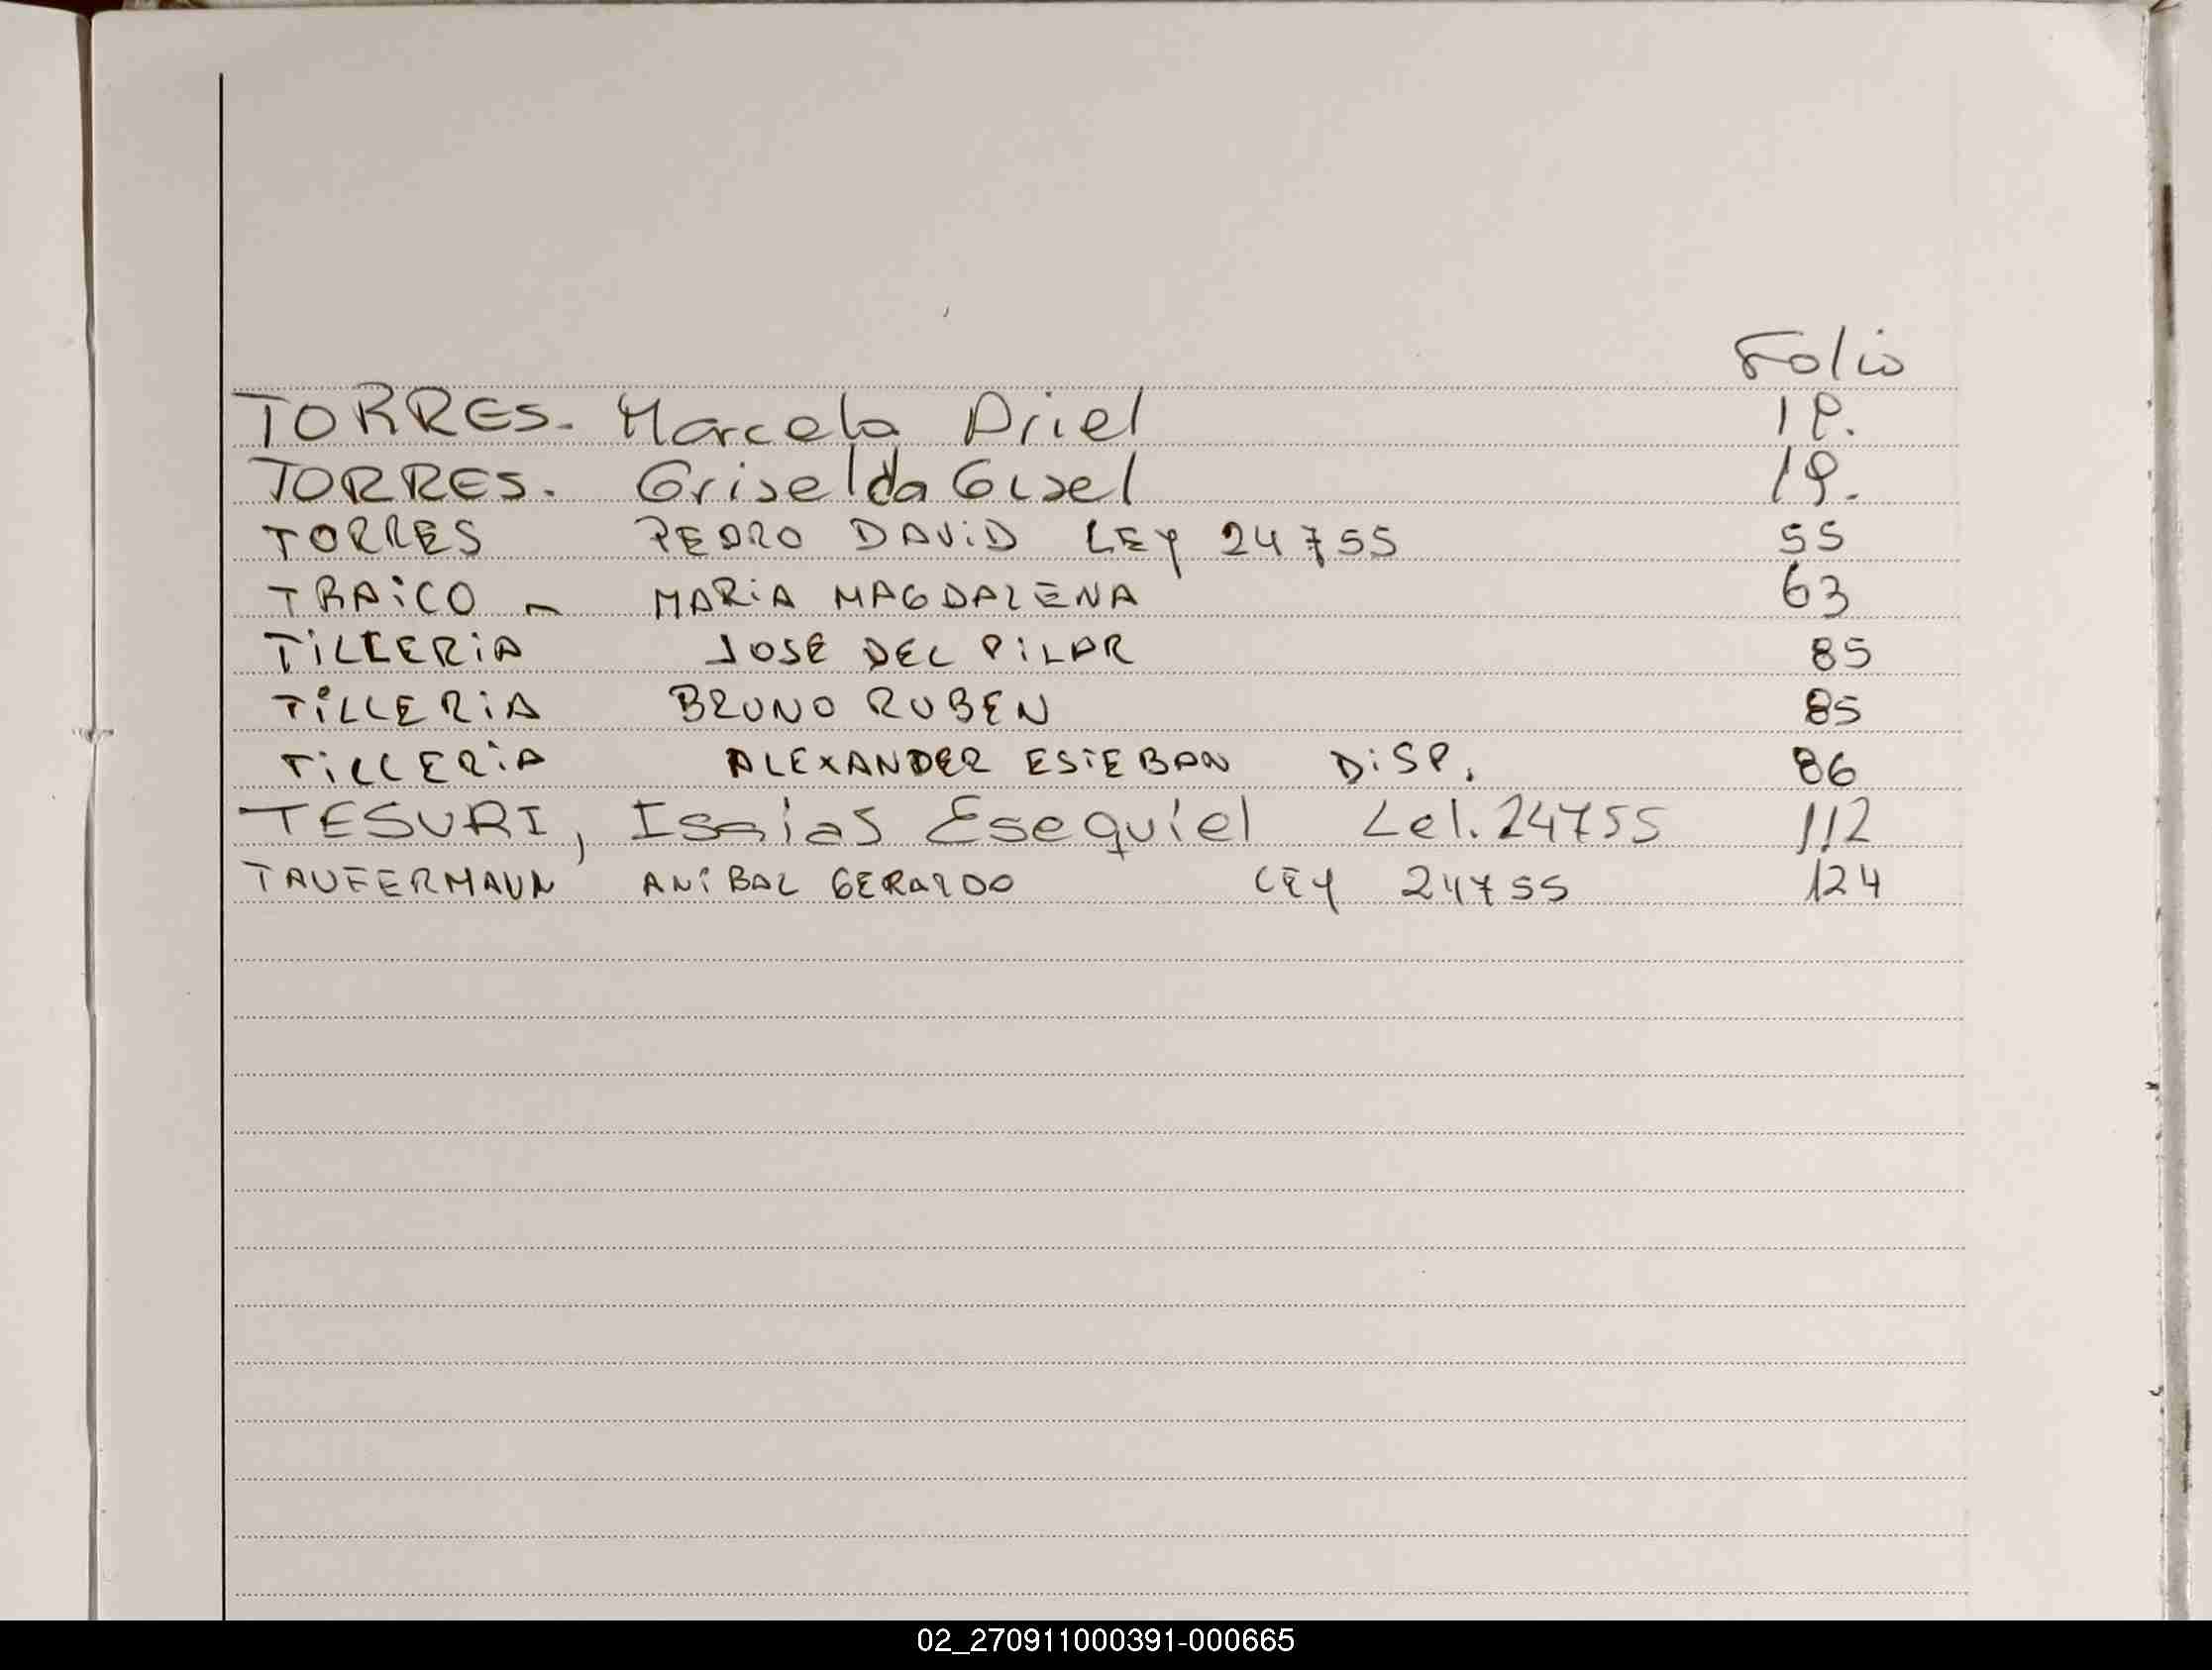 Folio
TORRES. Marcelo Ariel 18.
TORRES. Griselda Gisel 19.
TORRES PEDRO DAVID LEY 24755 55
TRAICO - MARIA MAGDALENA 63
TILLERIA JOSE DEL PILAR 85
TILLERIA BRUNO RUBEN 85
TILLERIA ALEXANDER ESTEBAN DISP. 86
TESURI, Isaias Esequiel Lel. 24755 112
TAUFERMANN ANIBAL GERARDO LEY 24755 124
02_270911000391-000665